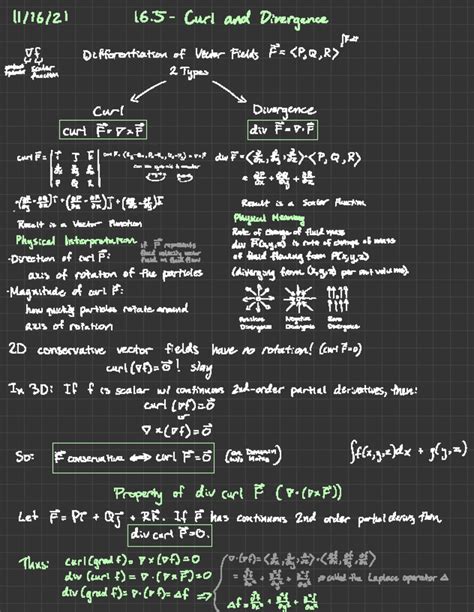 11/16/21 16.5 - Curl and Divergence
∇f
scalar function
Differentiation of Vector Fields F⃗ = <P, Q, R>
2 Types
Curl
Divergence
curl F⃗ = ∇ x F⃗
div F⃗ = ∇ · F⃗
curl F⃗ = | i⃗ j⃗ k⃗ |
| ∂/∂x ∂/∂y ∂/∂z |
| P Q R |
div F⃗ = <∂/∂x, ∂/∂y, ∂/∂z> · <P, Q, R>
= ∂P/∂x + ∂Q/∂y + ∂R/∂z
Result is a Vector Function
Result is a Scalar Function
Physical Interpretation
if F⃗ represents
fluid velocity vector
field in fluid flow
· Direction of curl F⃗:
axis of rotation of the particles
· Magnitude of curl F⃗:
how quickly particles rotate around
axis of rotation
Physical Meaning
Rate of change of fluid mass
div F⃗(x,y,z) is rate of change of mass
of fluid flowing from P(x,y,z)
(diverging from (x,y,z) per unit volume).
Positive Divergence
Negative Divergence
Zero Divergence
2D conservative vector fields have no rotation! (curl F=0)
curl (∇f) = 0⃗ ! slay
In 3D: If f is scalar w/ continuous 2nd-order partial derivatives, then:
curl (∇f) = 0⃗
or
∇ x (∇f) = 0⃗
So: F⃗ conservative ⟷ curl F⃗ = 0⃗ (on Domain w/o Holes)
∫f(x,y,z)dx + g(y,z)
Property of div curl F⃗ (∇ · (∇ x F⃗))
Let F⃗ = Pi⃗ + Qj⃗ + Rk⃗. If F⃗ has continuous 2nd order partial derivs, then
div curl F⃗ = 0.
Thus: curl (grad f) = ∇ x (∇f) = 0
div (curl f) = ∇ · (∇ x F⃗) = 0
div (grad f) = ∇ · (∇f) ⟹
∇ · (∇f) = <∂/∂x, ∂/∂y, ∂/∂z> · <∂f/∂x, ∂f/∂y, ∂f/∂z>
= ∂²f/∂x² + ∂²f/∂y² + ∂²f/∂z² called the Laplace operator Δ
Δf = ∂²f/∂x² + ∂²f/∂y² + ∂²f/∂z²